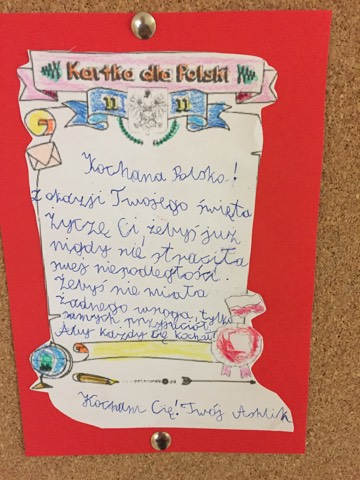 Kartka dla Polski
11 11
Kochana Polsko!
Z okazji Twojego święta
Życzę Ci, żebyś już
nigdy nie straciła
swej niepodległości.
Żebyś nie miała
żadnego wroga, tylko
samych przyjaciół.
Aby każdy Cię kochał.
Kocham Cię! Twój